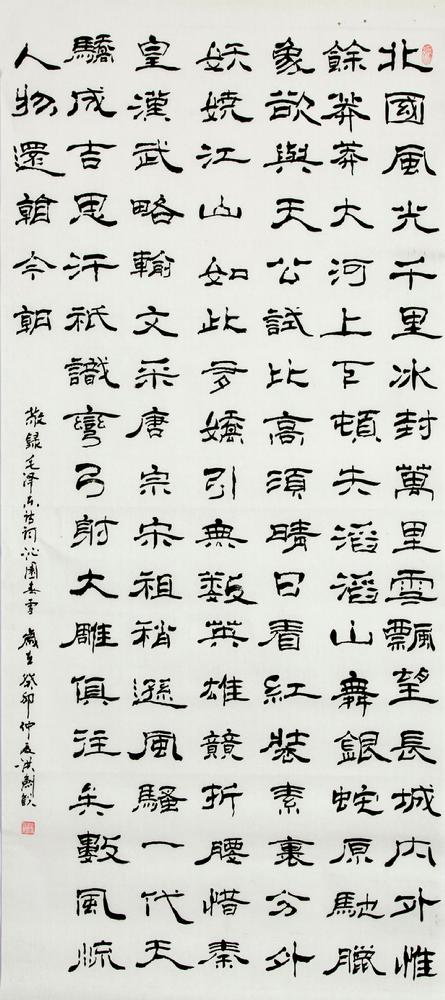 北國風光千里冰封萬里雪飄望長城內外惟
餘莽莽大河上下頓失滔滔山舞銀蛇原馳臘
象欲與天公試比高須晴日看紅裝素裏分外
妖嬈江山如此多嬌引無數英雄競折腰惜秦
皇漢武略輸文采唐宗宋祖稍遜風騷一代天
驕成吉思汗祇識彎弓射大雕俱往矣數風流
人物還看今朝
敬錄毛泽东诗词沁園春雪 歲在癸卯仲夏洪